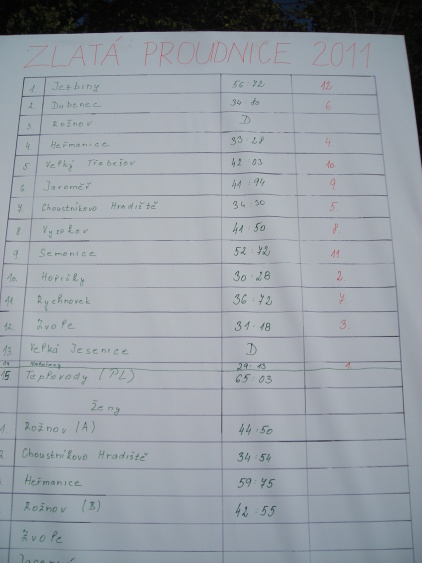 ZLATÁ PROUDNICE 2011
1. Jezbiny 56:72 12.
2. Dubenec 34:10 6.
3. Rožnov D
4. Heřmanice 33:28 4.
5. Velký Třebešov 42:03 10.
6. Jaroměř 41:94 9.
7. Choustníkovo Hradiště 34:30 5.
8. Vysokov 41:50 8.
9. Semonice 52:72 11.
10. Hořičky 30:28 2.
11. Rychnovek 36:72 7.
12. Žvole 31:18 3.
13. Velká Jesenice D
14 29:13 1.
15 Tepłovody (PL) 65:03
Ženy
1. Rožnov (A) 44:50
2. Choustníkovo Hradiště 34:54
Heřmanice 59:75
Rožnov (B) 42:55
Žvole